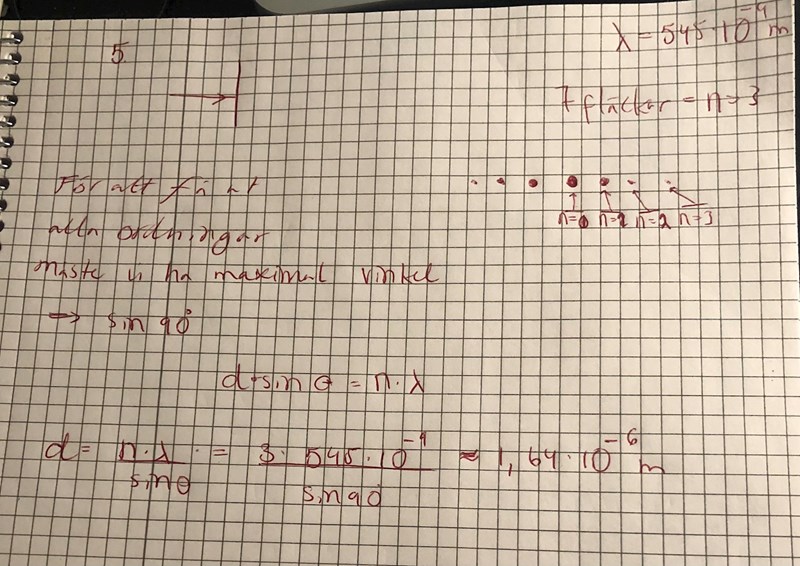 λ = 545·10⁻⁹ m
5
7 fläckar = n=3
För att få ut
alla ordningar
n=0 n=1 n=2 n=3
måste vi ha maximal vinkel
→ sin 90°
d·sin θ = n·λ
d = n·λ / sin θ = 3·545·10⁻⁹ / sin 90 ≈ 1,64·10⁻⁶ m